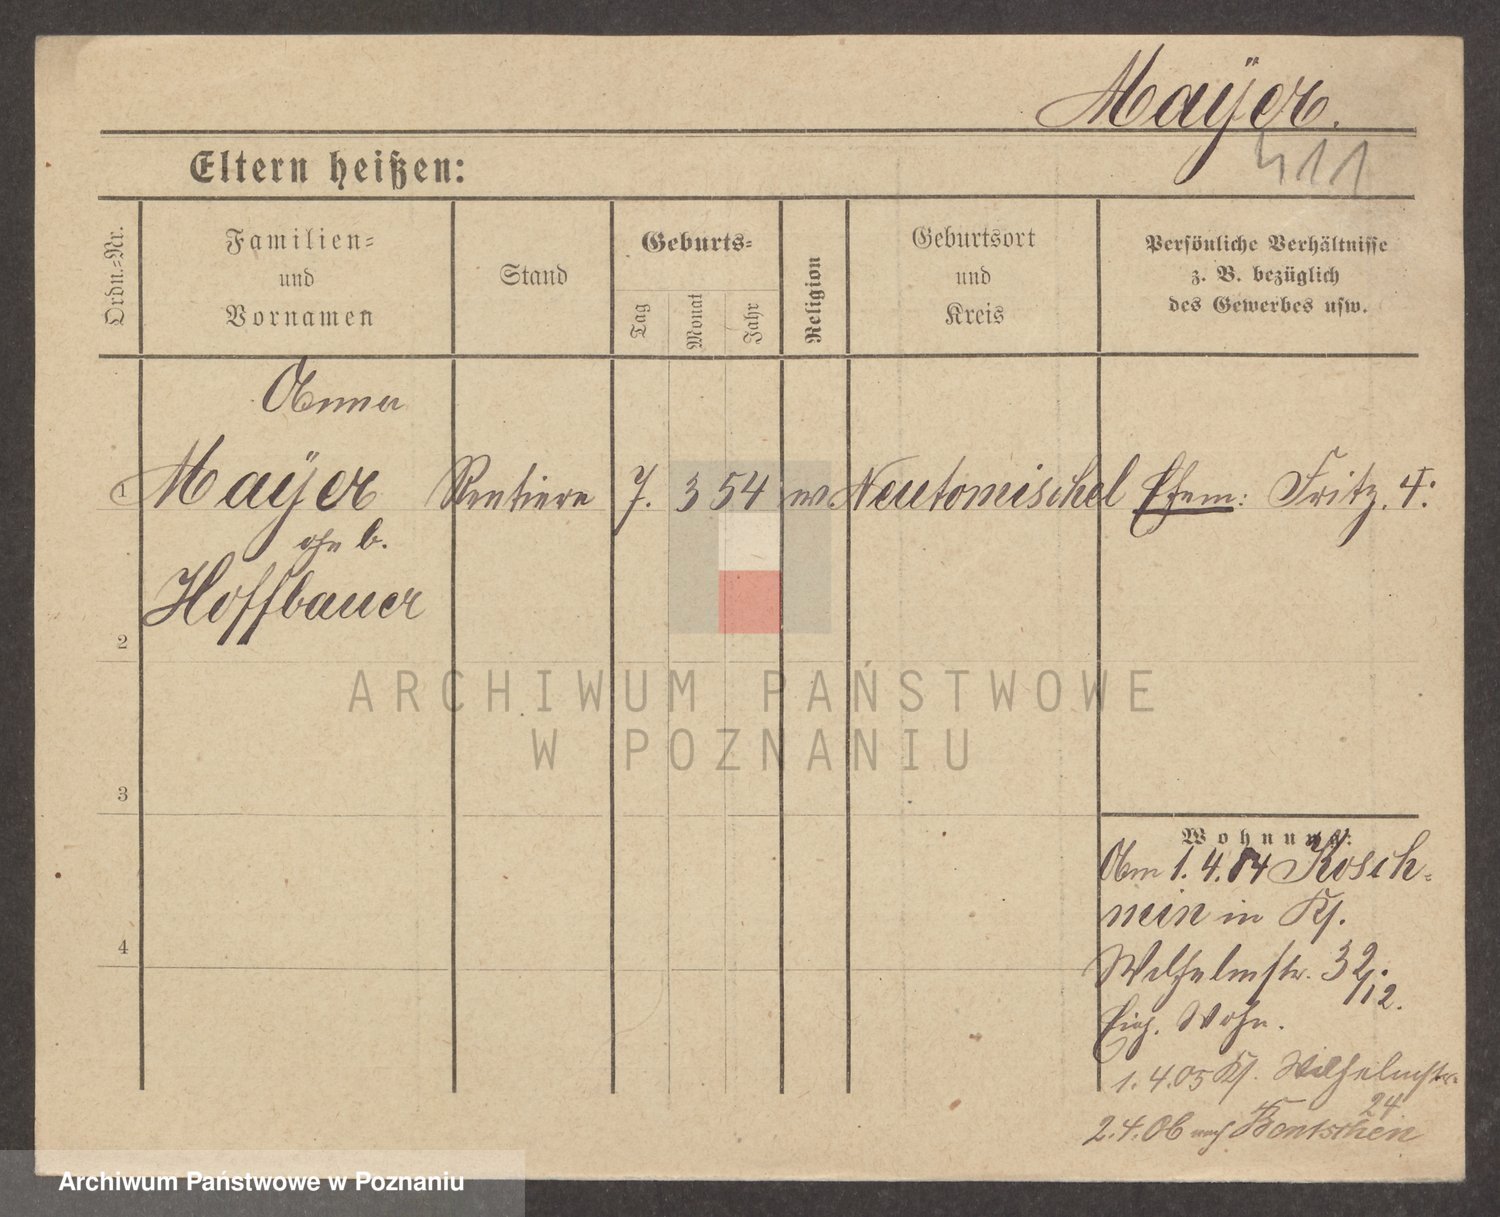 Mayer.
Eltern heißen:
411
Ordn.-Nr.
Familien-
und
Vornamen
Stand
Geburts-
Tag
Monat
Jahr
Religion
Geburtsort
und
Kreis
Persönliche Verhältnisse
z. B. bezüglich
des Gewerbes usw.
Anna
1 Mayer Rentiere 7. 3 54 Neutomischel Ehem: Fritz
geb.
Hoffbauer
2
ARCHIWUM PAŃSTWOWE
W POZNANIU
3
Wohnung:
Am 1. 4. 04 Kosch-
min in
4
Wilhelmstr. 32
Eig. Wohn.
1. 4. 05 Wilhelmstr.
24
2. 4. 06 nach Bentschen
Archiwum Państwowe w Poznaniu